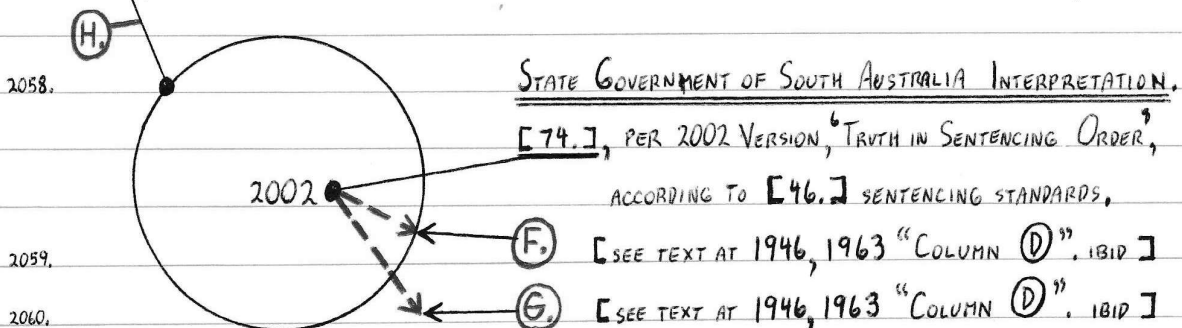 H.
2058.
STATE GOVERNMENT OF SOUTH AUSTRALIA INTERPRETATION.
[74.], PER 2002 VERSION, 'TRUTH IN SENTENCING ORDER',
2002
ACCORDING TO [46.] SENTENCING STANDARDS.
2059.
F. [SEE TEXT AT 1946, 1963 "COLUMN D". IBID]
2060.
G. [SEE TEXT AT 1946, 1963 "COLUMN D". IBID]